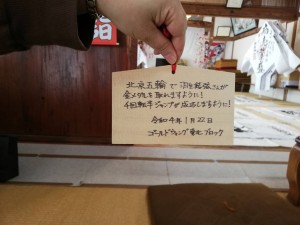 北京五輪で羽生結弦さんが
金メダルを取れますように！
4回転半ジャンプが成功しますように！
令和4年1月22日
ゴールドウィング東北ブロック